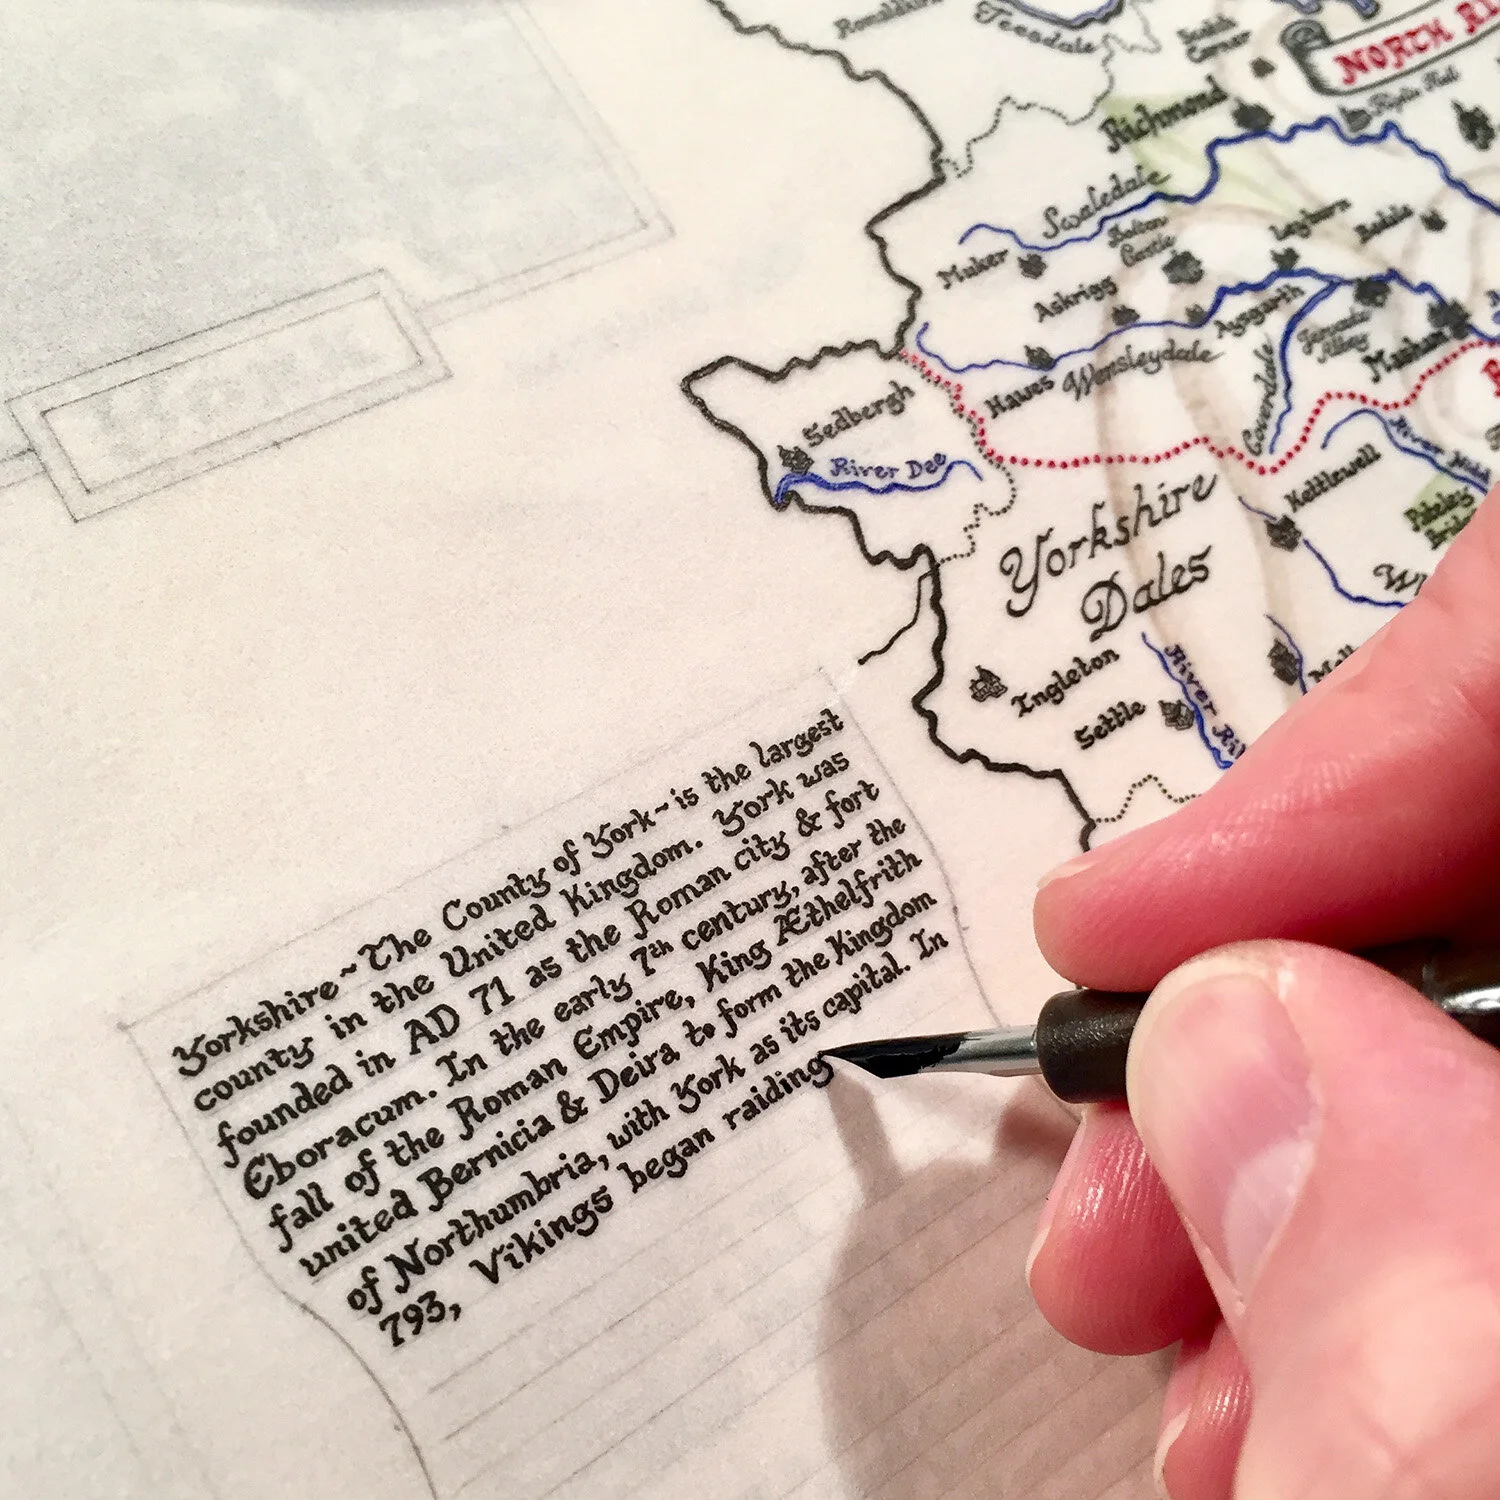 Teesdale
Scotch
Corner
NORTH
Richmond
Swaledale
Muker
Bolton
Castle
Leyburn
Bedale
Askrigg
Aysgarth
Hawes
Wensleydale
Coverdale
Jervaulx
Abbey
Sedbergh
River Dee
River
Kettlewell
Yorkshire
Dales
Ingleton
Settle
River
Yorkshire ~ The County of York ~ is the largest
county in the United Kingdom. York was
founded in AD 71 as the Roman city & fort
Eboracum. In the early 7th century, after the
fall of the Roman Empire, King Æthelfrith
united Bernicia & Deira to form the Kingdom
of Northumbria, with York as its capital. In
793, Vikings began raiding